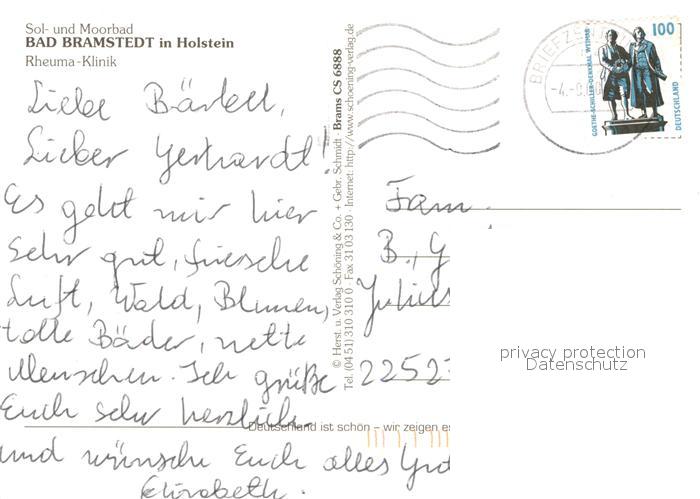 Sol- und Moorbad
BAD BRAMSTEDT in Holstein
Rheuma-Klinik
Liebe Bärbel,
Lieber Gerhardt!
Es geht mir hier
sehr gut, friesche
Luft, Wald, Blumen,
tolle Bäder, nette
Menschen. Ich grüße
Euch sehr herzlich
und wünsche Euch alles Gut
Elisabeth.
© Herst. u. Verlag Schöning & Co. + Gebr. Schmidt · Brams CS 6888
Tel. (04 51) 310 310 0 · Fax 31 03 130 · Internet: http://www.schoening-verlag.de
Deutschland ist schön – wir zeigen es
BRIEFZE
-4.-
100
GOETHE-SCHILLER-DENKMAL WEIMAR
DEUTSCHLAND
Fam.
B., G
Julius
2252
privacy protection
Datenschutz